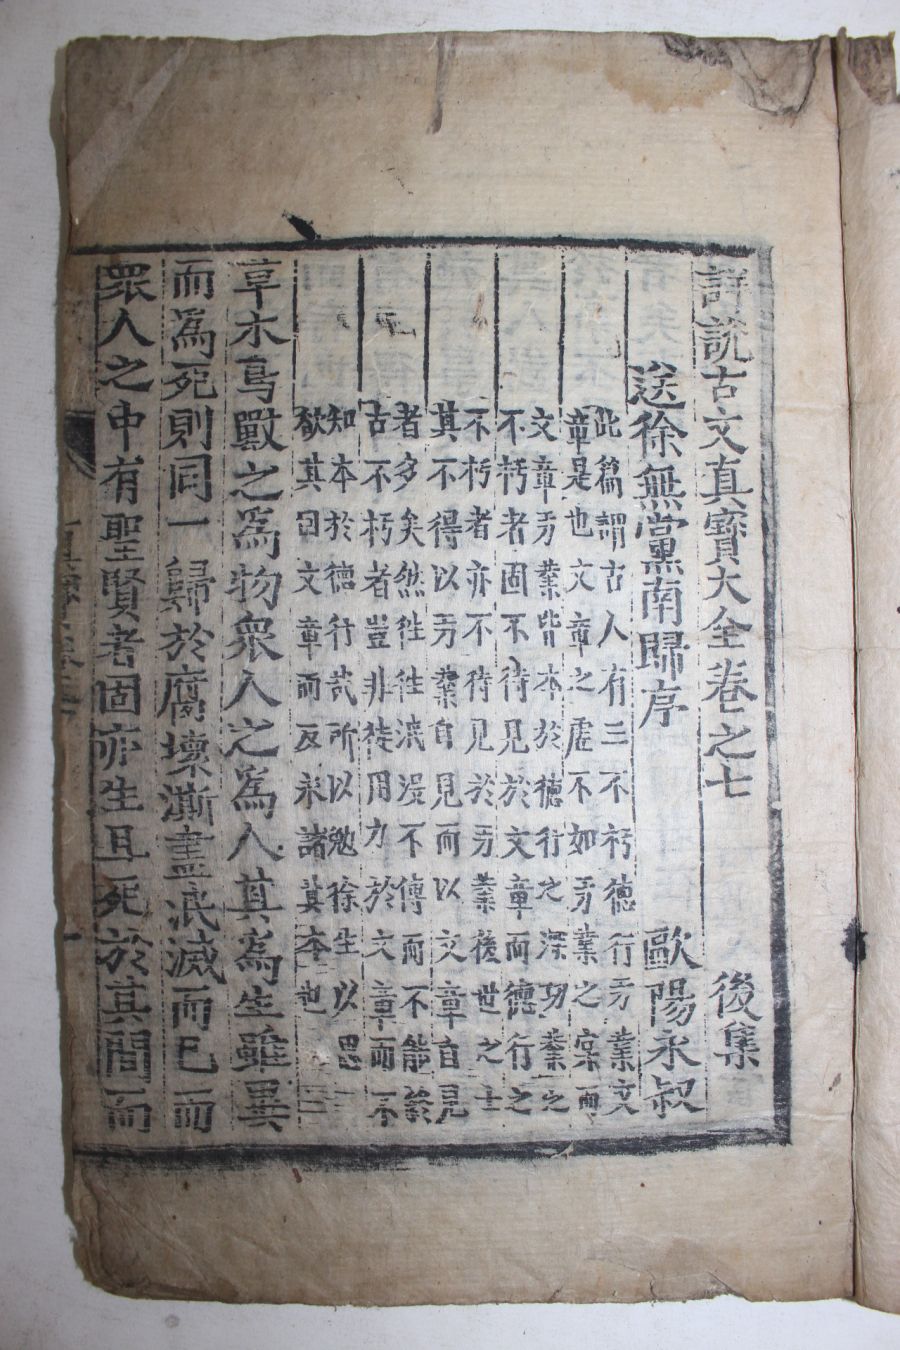 詳說古文真寶大全卷之七 後集
送徐無黨南歸序 歐陽永叔
此篇謂古人有三不朽德行功業文
章是也文章之虛不如功業之實而
文章功業皆本於德行之深功業之
不朽者固不待見於文章而德行之
不朽者亦不待見於功業後世之士
其不得以功業自見而以文章自見
者多矣然往往泯沒不傳而不能
古不朽者豈非徒用力於文章而不
知本於德行哉所以勉徐生以思
欲其因文章而反求諸其本也
草木鳥獸之爲物衆人之爲人其爲生雖異
而爲死則同一歸於腐壞澌盡泯滅而已而
衆人之中有聖賢者固亦生且死於其間而